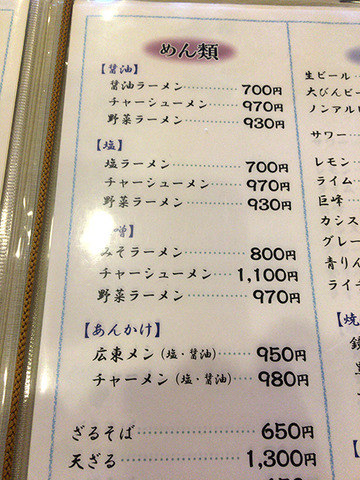 めん類
【醤油】
醤油ラーメン…………700円
チャーシューメン………970円
野菜ラーメン…………930円
【塩】
塩ラーメン……………700円
チャーシューメン………970円
野菜ラーメン…………930円
噌】
みそラーメン…………800円
チャーシューメン……1,100円
野菜ラーメン…………970円
【あんかけ】
広東メン(塩・醤油)……950円
チャーメン(塩・醤油)……980円
ざるそば………………650円
天ざる………………1,300円
生ビール
大びんビー
ノンアル
サワー
レモン
ライム
巨峰
カシス
グレー
青りん
ライチ
【焼